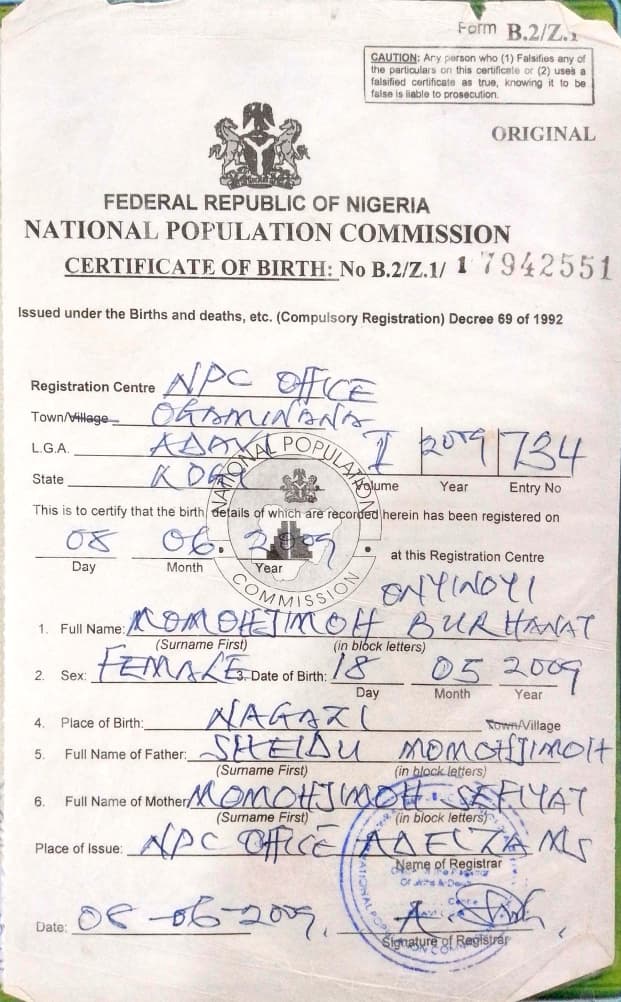 Form B.2/Z.1
CAUTION: Any person who (1) Falsifies any of
the particulars on this certificate or (2) uses a
falsified certificate as true, knowing it to be
false is liable to prosecution.
ORIGINAL
FEDERAL REPUBLIC OF NIGERIA
NATIONAL POPULATION COMMISSION
CERTIFICATE OF BIRTH: No B.2/Z.1/ 17942551
Issued under the Births and deaths, etc. (Compulsory Registration) Decree 69 of 1992
Registration Centre NPC OFFICE
Town/Village OGAMINANA
L.G.A. ADAVI I 2009 734
State KOGI Volume Year Entry No
NATIONAL POPULATION COMMISSION
This is to certify that the birth, details of which are recorded herein has been registered on
08 06 2009 at this Registration Centre
Day Month Year
ONYINOYI
1. Full Name: MOMOHJIMOH BURHANAT
(Surname First) (in block letters)
2. Sex: FEMALE 3. Date of Birth: 18 05 2009
Day Month Year
4. Place of Birth: NAGAZI Town/Village
5. Full Name of Father: SHEIDU MOMOHJIMOH
(Surname First) (in block letters)
6. Full Name of Mother MOMOHJIMOH SEFIYAT
(Surname First) (in block letters)
Place of Issue: NPC OFFICE
Name of Registrar
Date: 08-06-2009.
Signature of Registrar